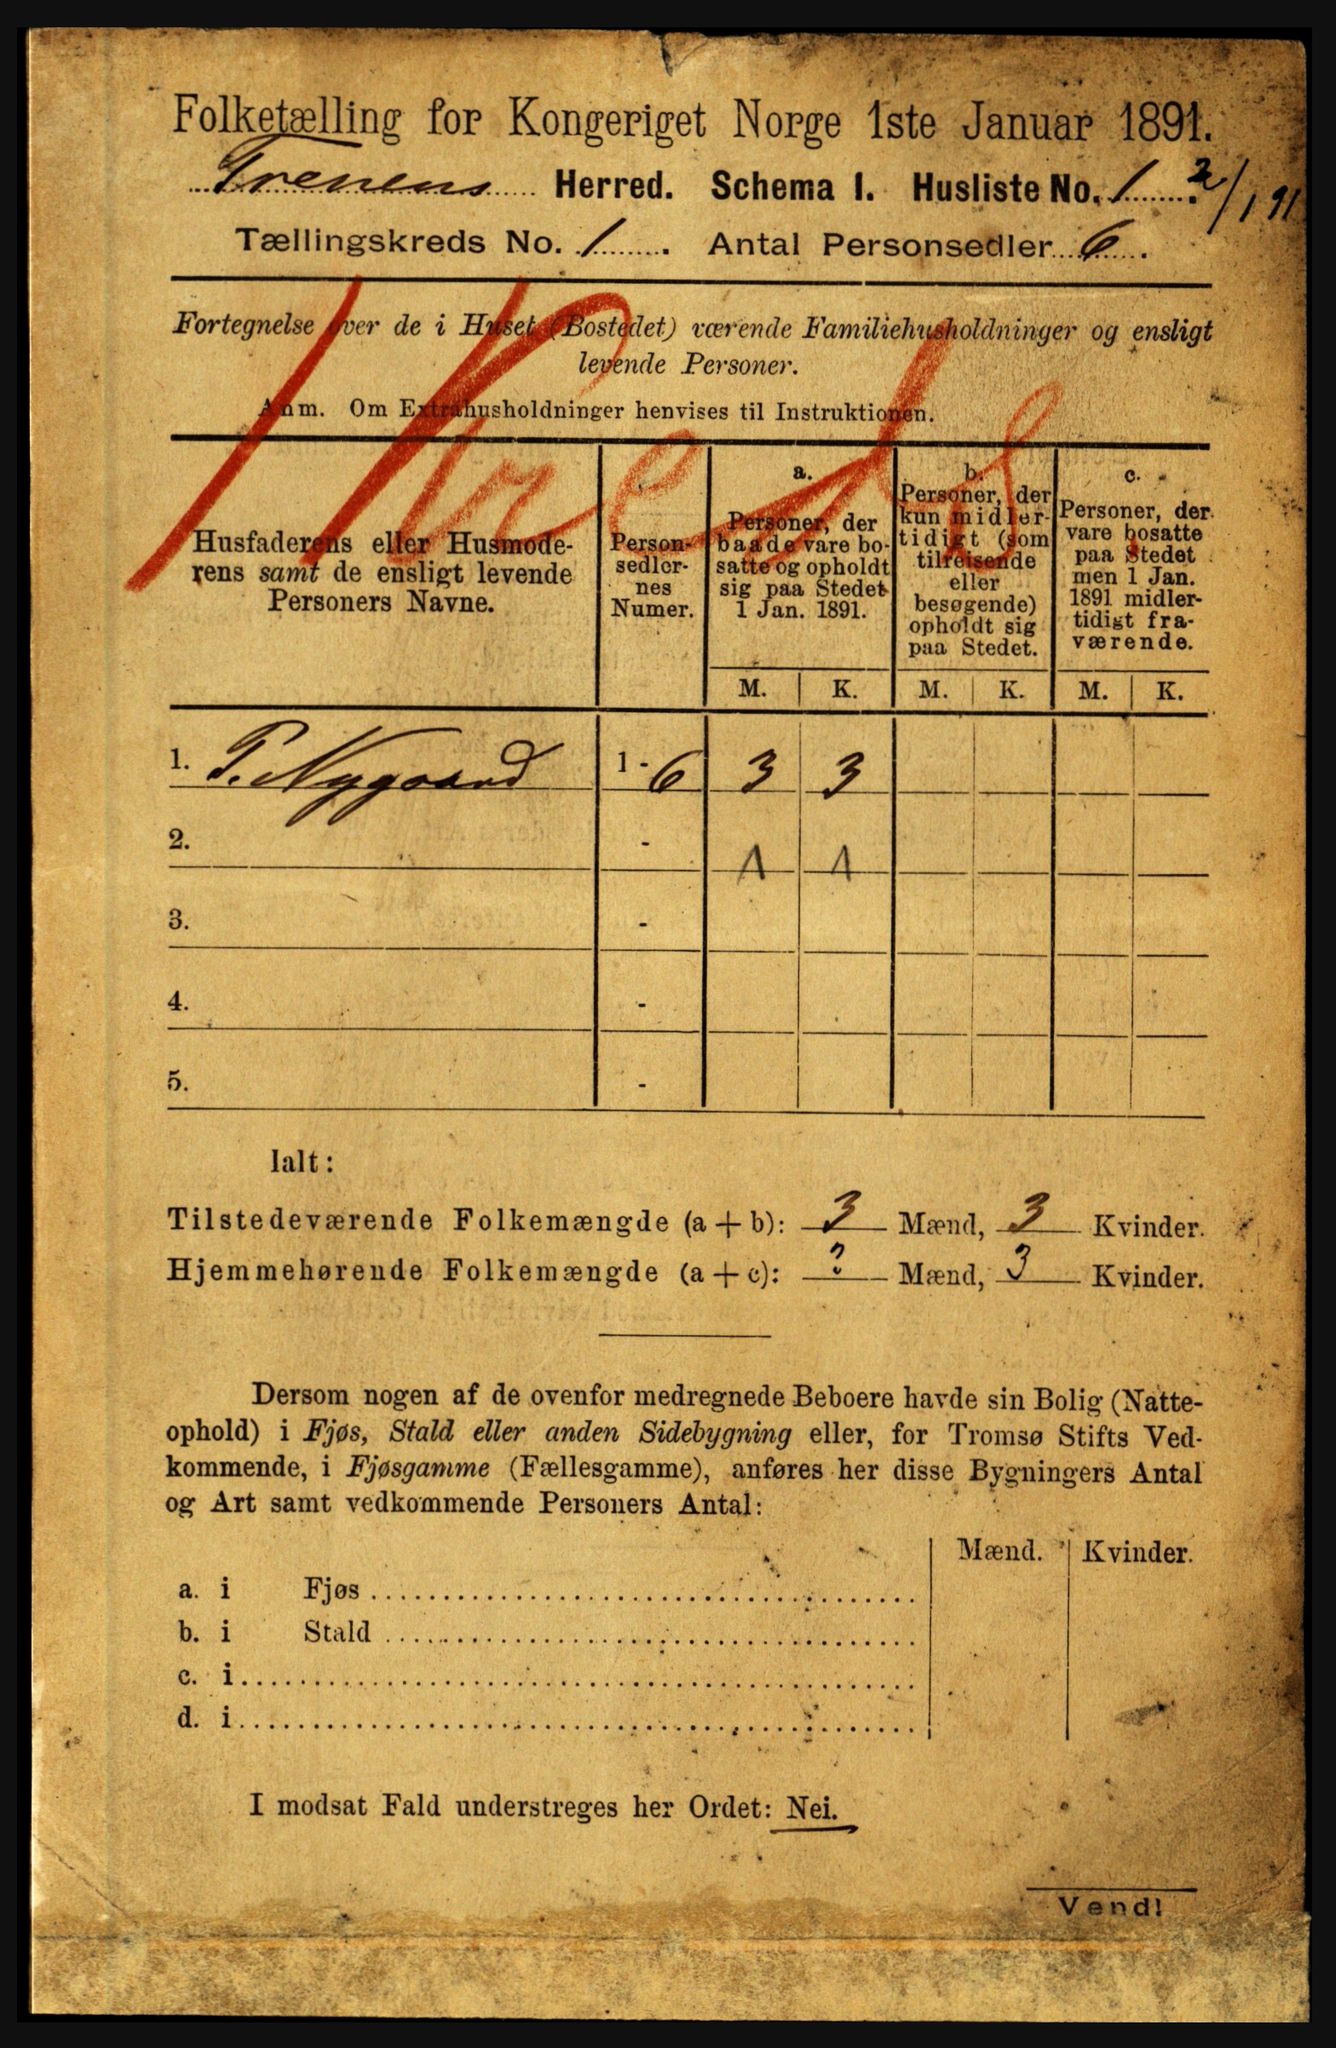 Folketælling for Kongeriget Norge 1ste Januar 1891.
Trenens Herred. Schema I. Husliste No. 1. 2/1 91
Tællingskreds No. 1. Antal Personsedler 6.
1 Kreds
Fortegnelse over de i Huset (Bostedet) værende Familiehusholdninger og ensligt
levende Personer.
Anm. Om Extrahusholdninger henvises til Instruktionen.
Husfaderens eller Husmode-
rens samt de ensligt levende
Personers Navne.
Person-
sedler-
nes
Numer.
a.
Personer, der
baade vare bo-
satte og opholdt
sig paa Stedet
1 Jan. 1891.
b.
Personer, der
kun midler-
tidigt (som
tilreisende
eller
besøgende)
opholdt sig
paa Stedet.
c.
Personer, der
vare bosatte
paa Stedet
men 1 Jan.
1891 midler-
tidigt fra-
værende.
M. K. M. K. M. K.
1. P. Nygaard 1 - 6 3 3
2. - 1 1
3. -
4. -
5. -
Ialt:
Tilstedeværende Folkemængde (a + b): 3 Mænd, 3 Kvinder.
Hjemmehørende Folkemængde (a + c): 3 Mænd, 3 Kvinder.
Dersom nogen af de ovenfor medregnede Beboere havde sin Bolig (Natte-
ophold) i Fjøs, Stald eller anden Sidebygning eller, for Tromsø Stifts Ved-
kommende, i Fjøsgamme (Fællesgamme), anføres her disse Bygningers Antal
og Art samt vedkommende Personers Antal:
Mænd. Kvinder.
a. i Fjøs
b. i Stald
c. i
d. i
I modsat Fald understreges her Ordet: Nei.
Vend!